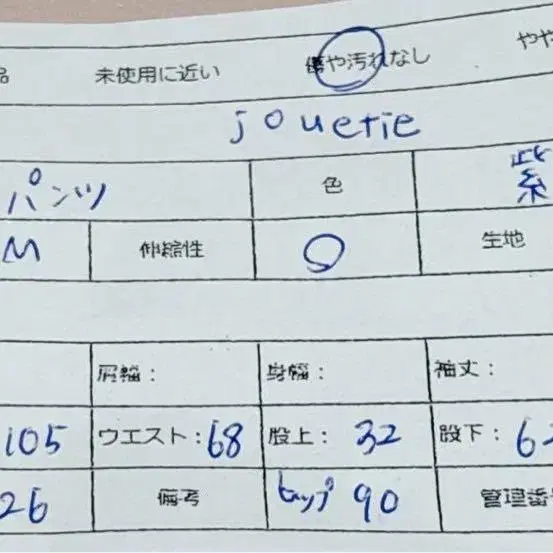 品 未使用に近い 傷や汚れなし やや
jouetie
パンツ 色 紫
M 伸縮性 ○ 生地
肩幅： 身幅： 袖丈：
105 ウエスト：68 股上：32 股下：62
26 備考 ヒップ 90 管理番号